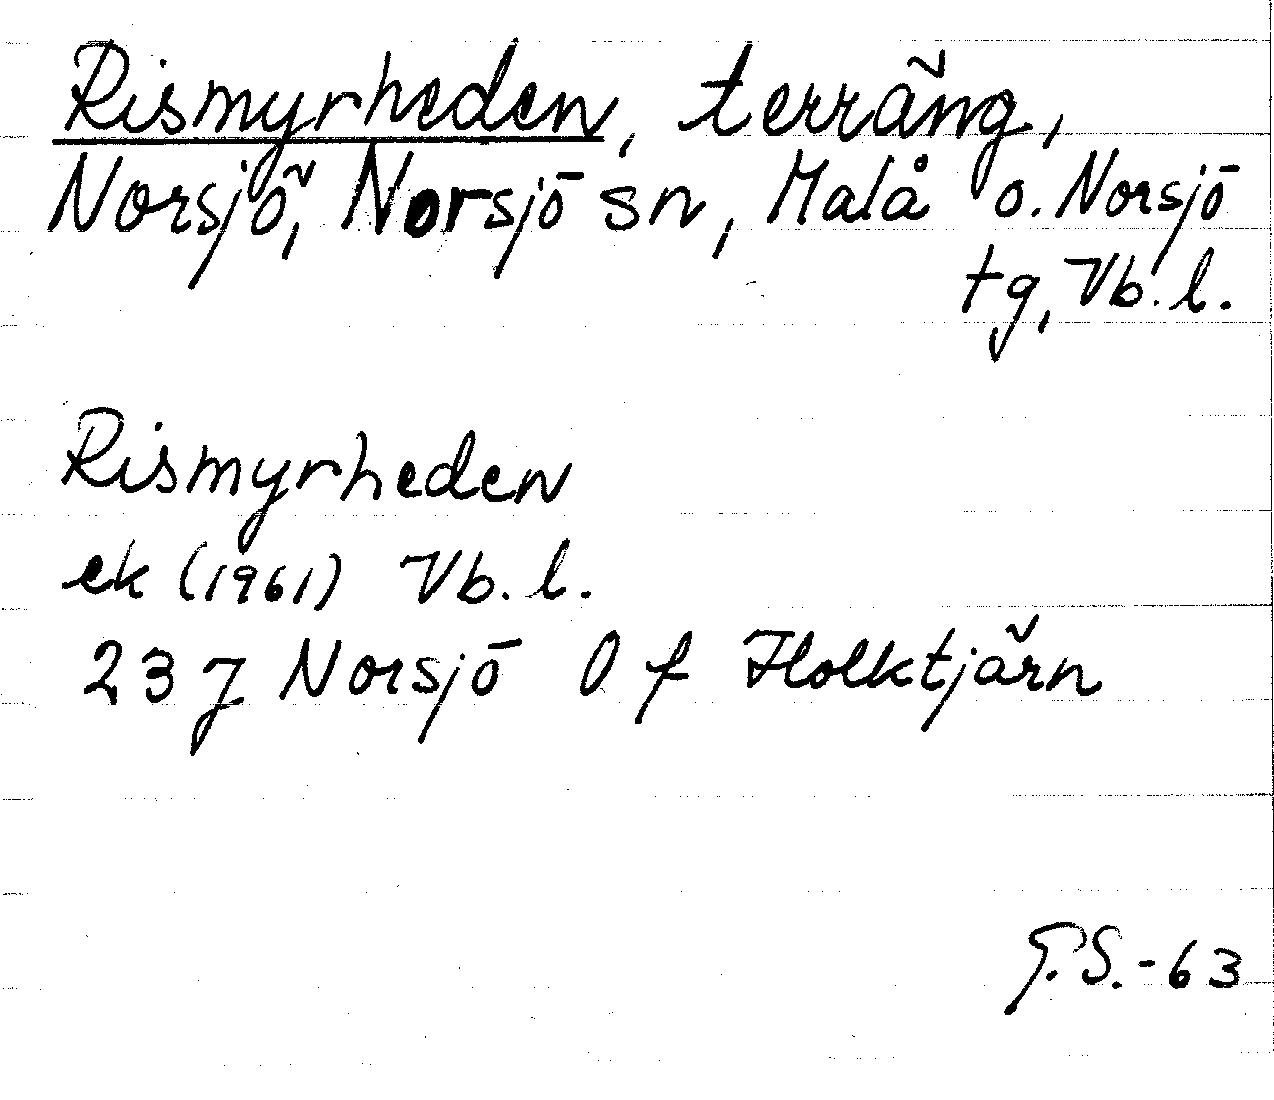 Rismyrheden, terräng,
Norsjö, Norsjö sn, Malå o. Norsjö
tg, Vb. l.
Rismyrheden
ek (1961) Vb. l.
23 J Norsjö O f Holktjärn
G.S.-63